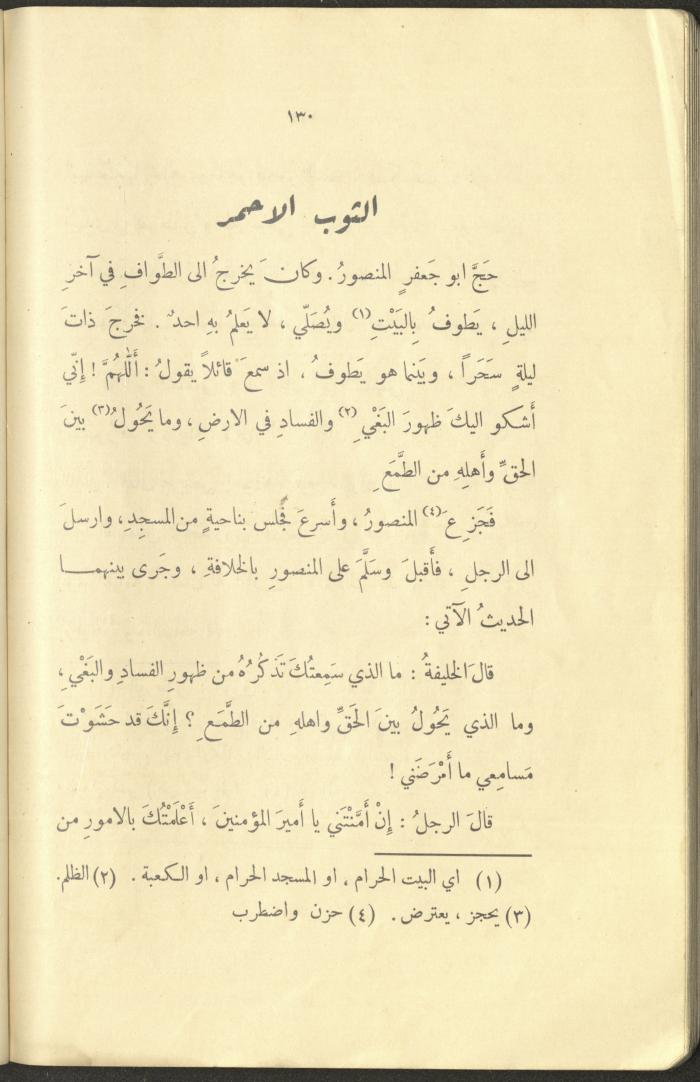 ١٣٠
الثوب الاحمر
حَجَّ ابو جَعفرٍ المنصورُ. وكانَ يخرجُ الى الطَّوافِ في آخرِ
الليلِ ، يَطوفُ بِالبَيْتِ(١) ويُصَلّي ، لا يَعلمُ بهِ احدٌ . فخرجَ ذاتَ
ليلةٍ سَحَراً ، وبَينما هو يَطوفُ . اذ سمعَ قائلاً يقولُ : أَللّٰهُمَّ ! إِنّي
أَشكو اليكَ ظهورَ البَغْيِ (٢) والفسادِ في الارضِ ، وما يَحُولُ(٣) بينَ
الحقِّ وأَهلِهِ من الطَّمَعِ
فَجَزِعَ(٤) المنصورُ ، وأَسرعَ فجلس بناحيةٍ من المسجِدِ، وارسلَ
الى الرجلِ ، فأَقبلَ وسَلَّمَ على المنصورِ بالخلافةِ ، وجَرى بينهما
الحديثُ الآتي :
قالَ الخليفةُ : ما الذي سَمِعتُكَ تَذكُرُهُ من ظهورِ الفسادِ والبَغْيِ ،
وما الذي يَحُولُ بينَ الحَقِّ واهلهِ من الطَّمَعِ ؟ إِنَّكَ قد حَشَوْتَ
مَسامِعي ما أَمْرَضَني !
قالَ الرجلُ : إِنْ أَمَّنْتَني يا أَميرَ المؤمنينَ ، أَعْلَمْتُكَ بالامورِ من
(١) اي البيت الحرام ، او المسجد الحرام ، او الكعبة . (٢) الظلم.
(٣) يحجز ، يعترض . (٤) حزن واضطرب